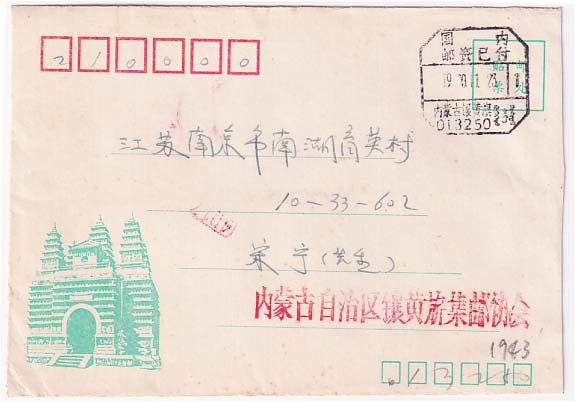 210000
国内
邮资已付
贴 邮
票 处
内蒙古镶黄旗
013250
江苏南京市南湖育英村
10-33-602
宋宁(先生)
内蒙古自治区镶黄旗集邮协会
1943
013250